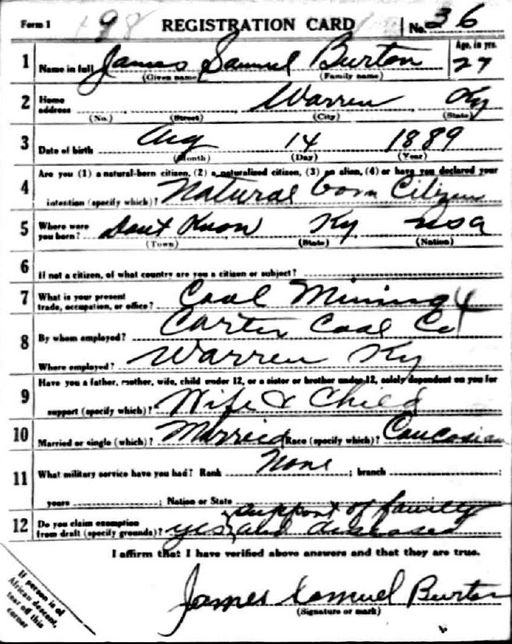 Form 1 198 REGISTRATION CARD No. 36
1 Name in full James Samuel Burton Age, in yrs. 27
(Given name) (Family name)
2 Home address Warren Ky
(No.) (Street) (City) (State)
3 Date of birth Aug 14 1889
(Month) (Day) (Year)
Are you (1) a natural-born citizen, (2) a naturalized citizen, (3) an alien, (4) or have you declared your
4 intention (specify which)? Natural born Citizen
5 Where were you born? Dont Know Ky USA
(Town) (State) (Nation)
6 If not a citizen, of what country are you a citizen or subject?
7 What is your present trade, occupation, or office? Coal Mining 4
8 By whom employed? Carter Coal Co
Where employed? Warren Ky
9 Have you a father, mother, wife, child under 12, or a sister or brother under 12, solely dependent on you for
support (specify which)? Wife & Child
10 Married or single (which)? Married Race (specify which)? Caucasian
11 What military service have you had? Rank None ; branch
years ; Nation or State
support of family
12 Do you claim exemption from draft (specify grounds)? yes, and diseased
I affirm that I have verified above answers and that they are true.
James Samuel Burton
(Signature or mark)
If person is of
African descent,
tear off this
corner